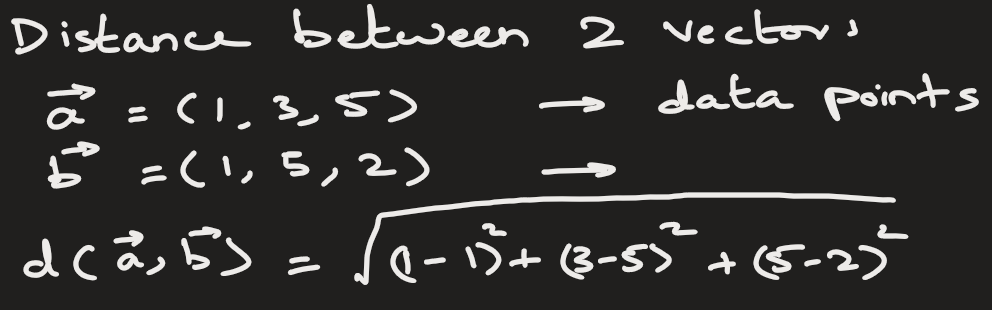 Distance between 2 vectors
a⃗ = (1, 3, 5) → data points
b⃗ = (1, 5, 2) →
d(a⃗, b⃗) = √((1-1)² + (3-5)² + (5-2)²)